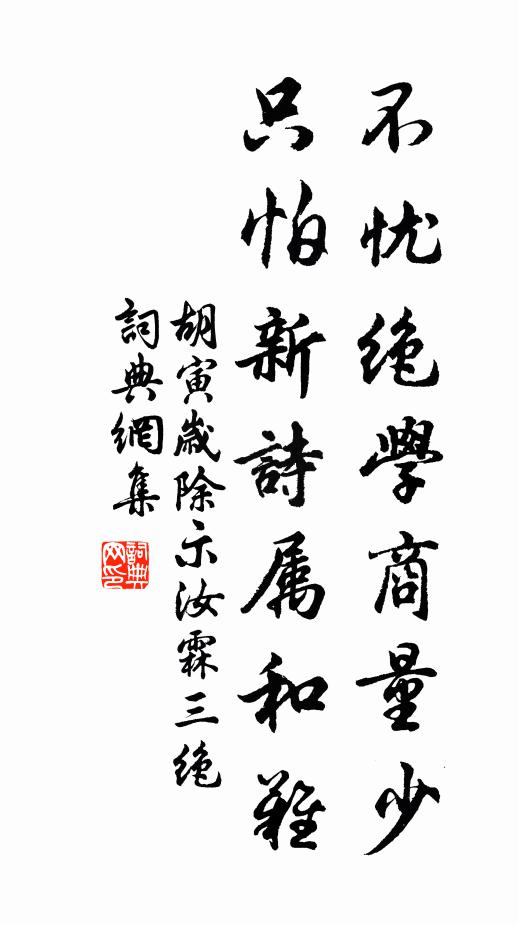 不忧绝學商量少
只怕新詩属和难
胡寅歲除示汝霖三绝
詞典網集
詞典网印